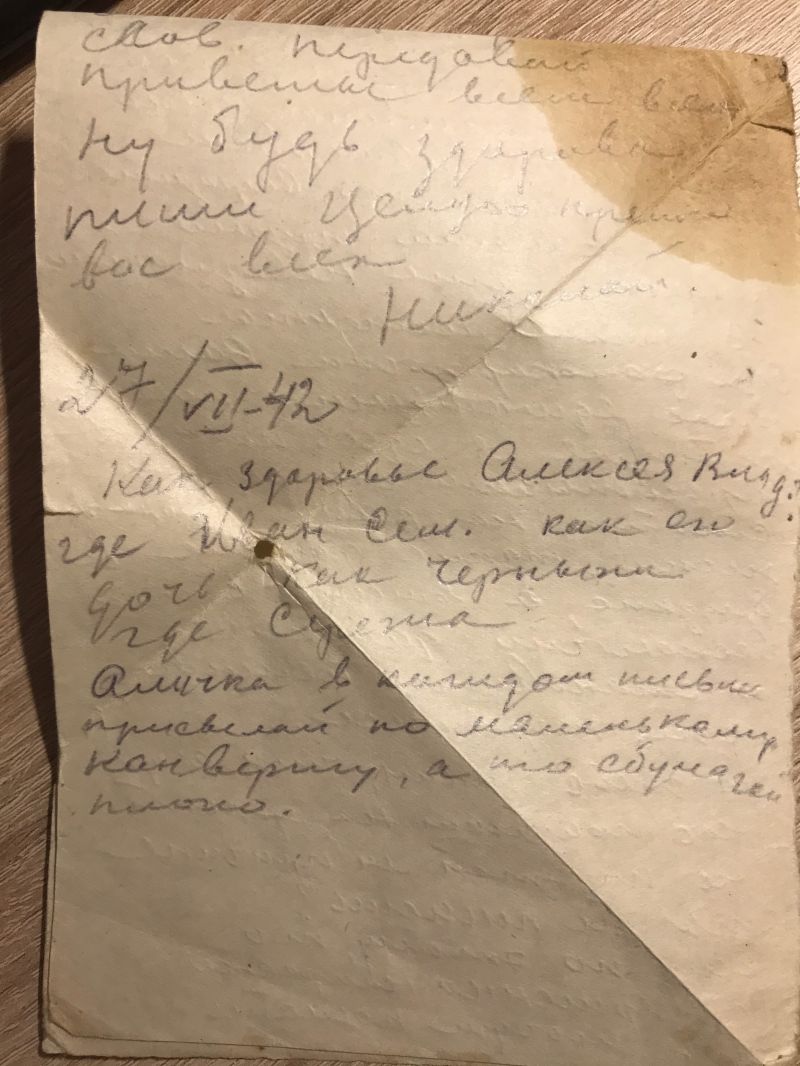 слов. передавай
приветы всем всем
Ну будь здорова
пиши Целую крепко
вас всех
Николай.
27/VII-42
Как здоровье Алексея Влад.?
где Иван Сем. как его
дочь. Как Черныхи
где Сережа
Аличка в каждом письме
присылай по маленькому
канверту, а то сбумагой
плохо.